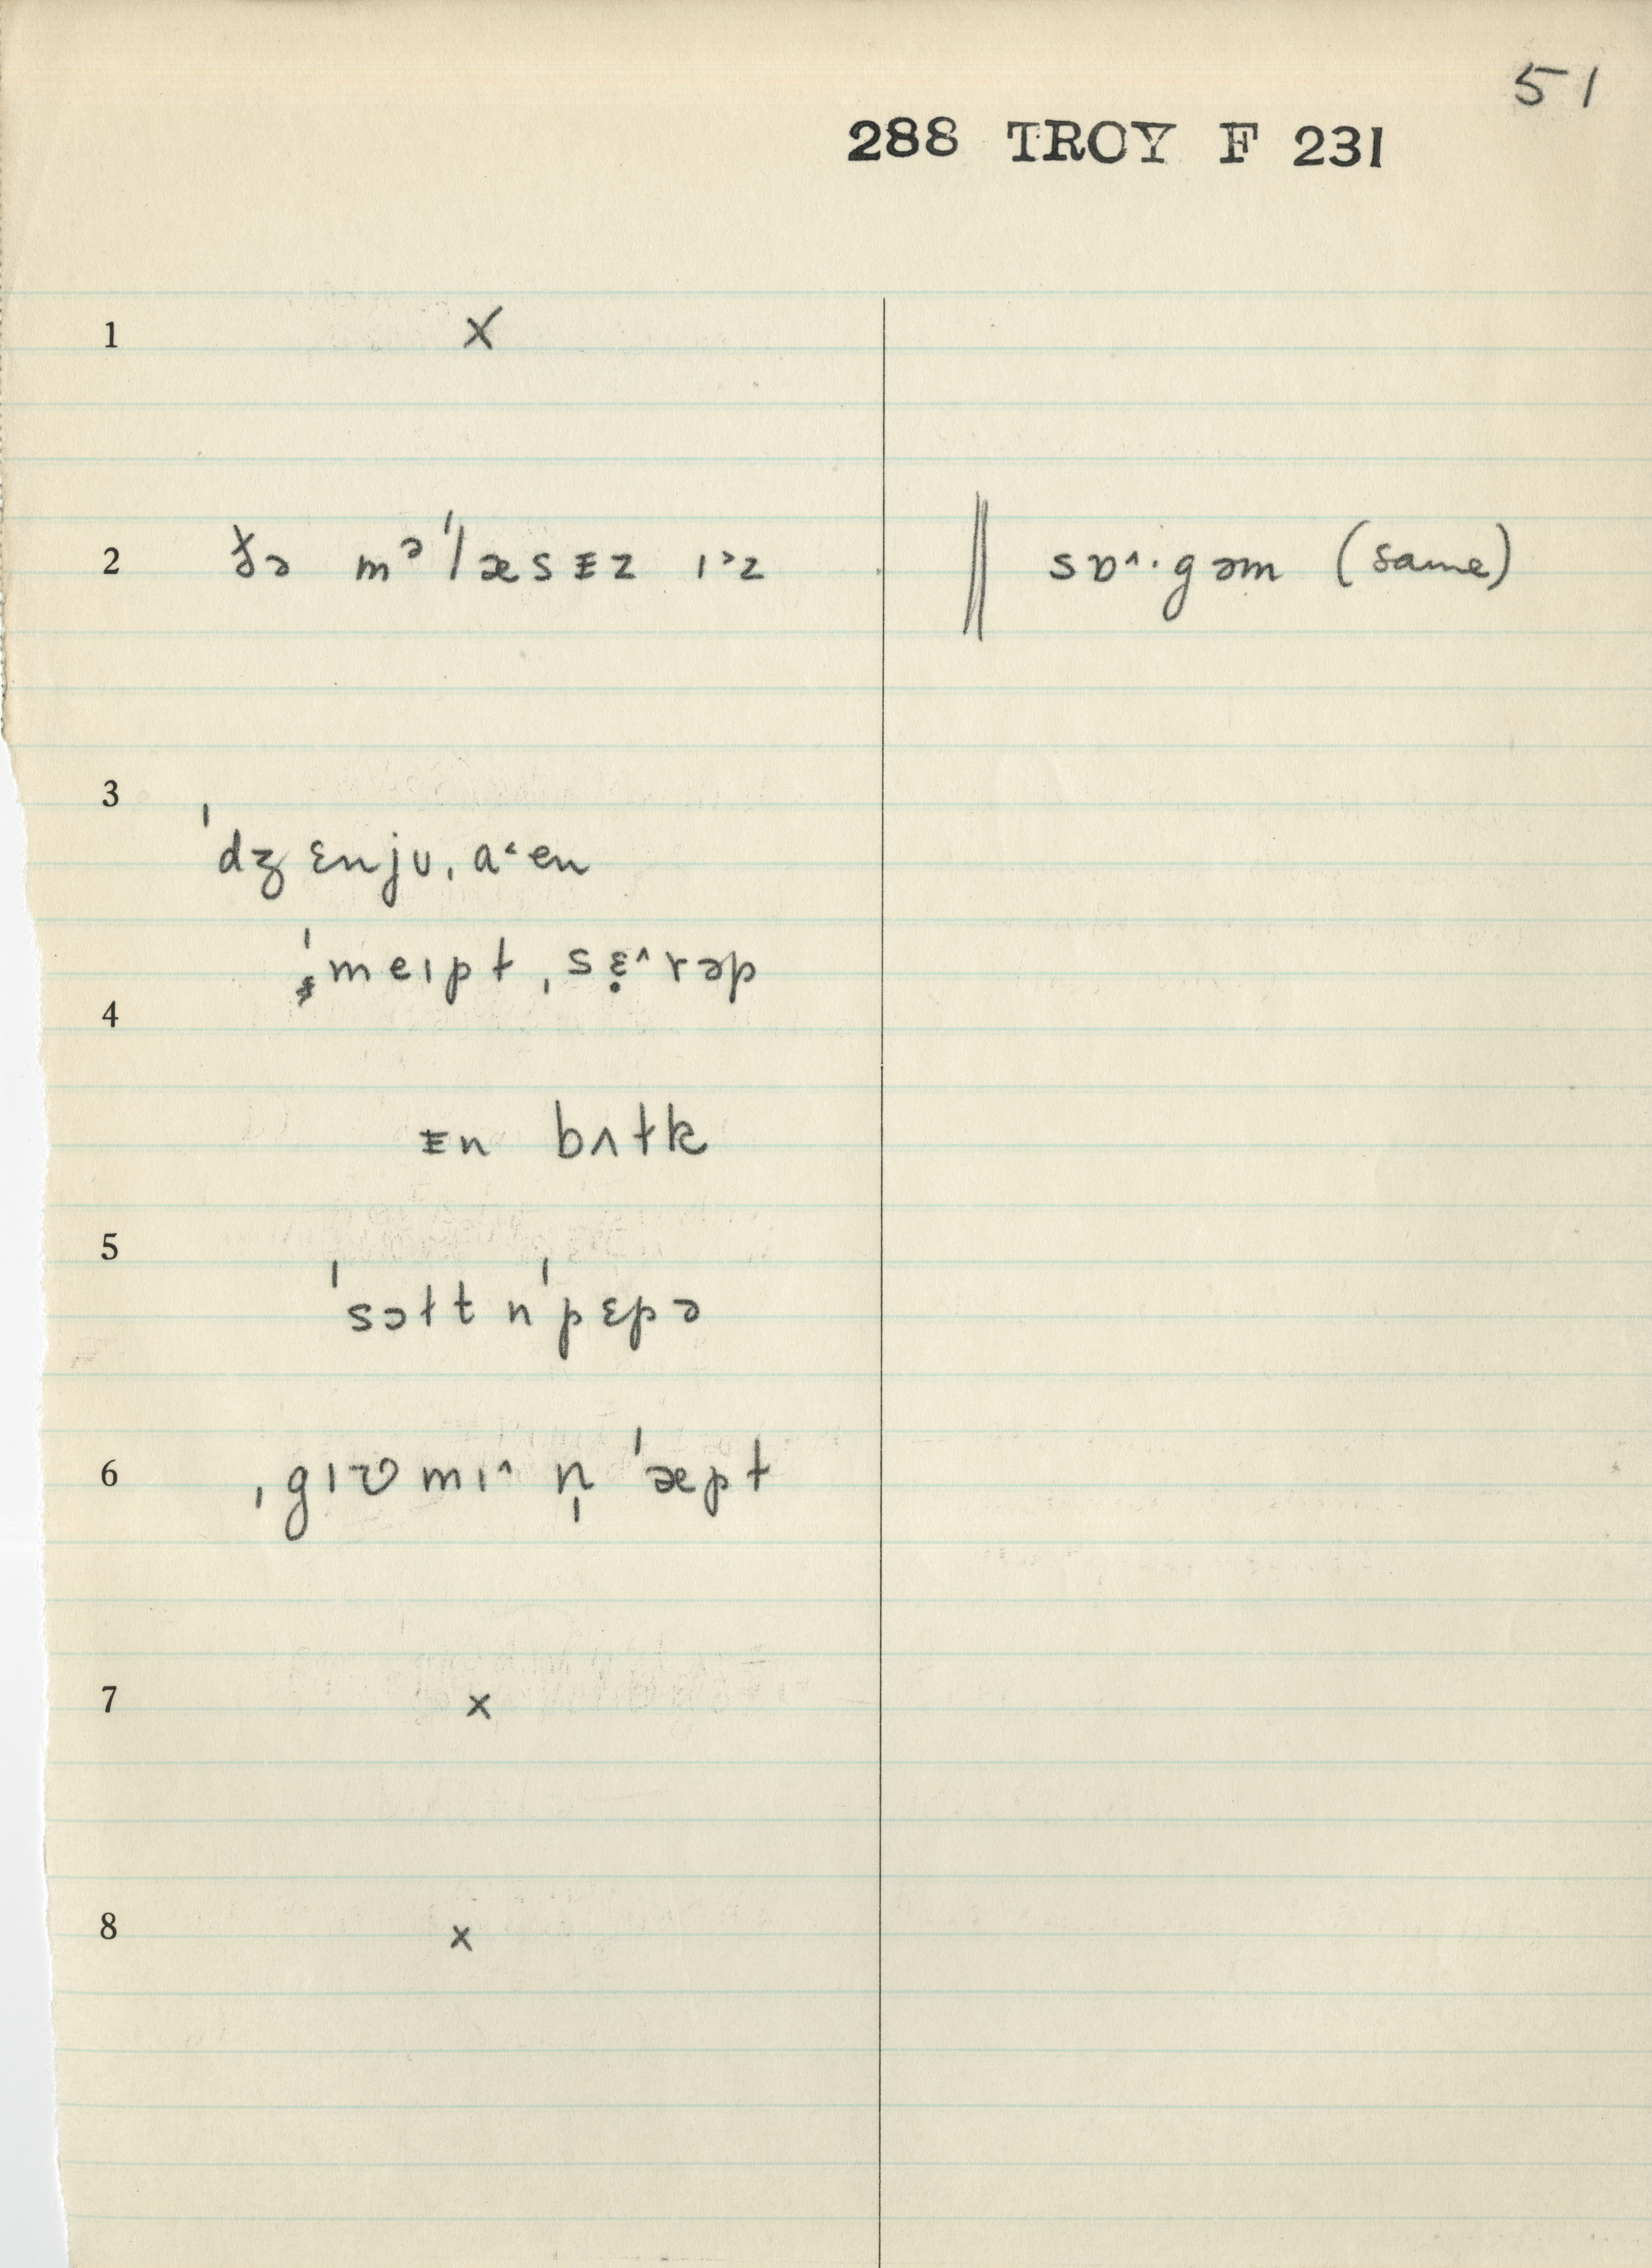 51
288 TROY F 231
1 X
2 ðə mə'læsᵻz ɪ˃z ‖ sɒ^·gəm (same)
3
'dʒɛnjʊˌa˂en
'meɪpɫˌsɛ̣^rəp
4
ᵻn bʌɫk
5
'sɔɫt n̩'pɛpə
6 ˌgɪʊmɪ^ n̩ 'æpɫ
7 x
8 x